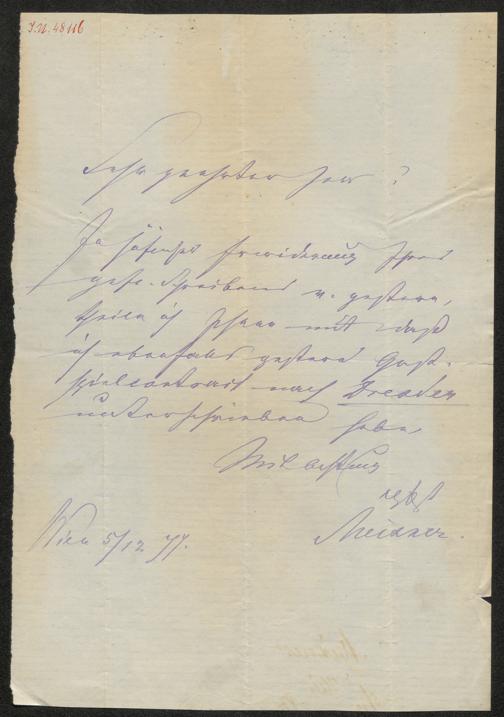 I.N. 48116
Sehr geehrter Herr!
In höflicher Erwiderung Ihres
gefr. Schreibens v. gestern,
theile ich Ihnen mit daß
ich ebenfalls gestern Gast-
spielcontract nach Dresden
unterschrieben habe
Mit Achtung
ergbst
Meixner.
Wien 5/12 77.